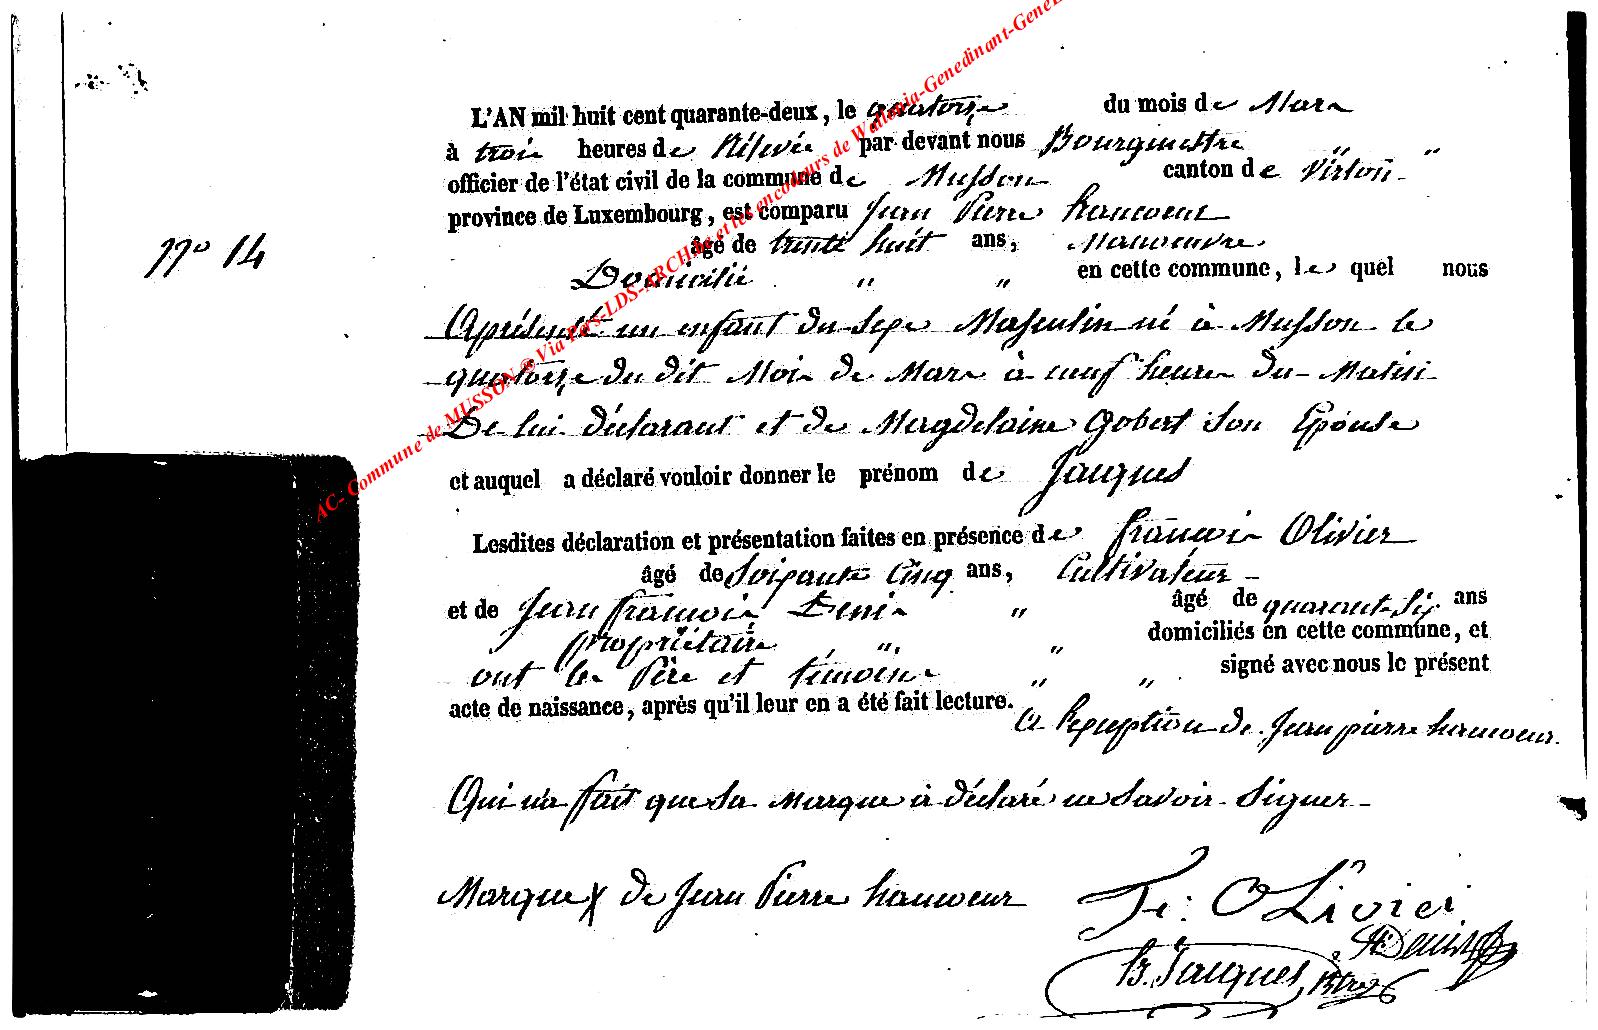 L'AN mil huit cent quarante-deux, le quatorze du mois de Mars
à trois heures de Rélevée par devant nous Bourgmestre " "
officier de l'état civil de la commune de Musson canton de Virton
province de Luxembourg, est comparu Jean Pierre
N° 14
âgé de trente huit ans, Manoeuvre
Domicilié " " en cette commune, le quel nous
Aprésenté un enfant du sexe Masculin né à Musson le
quatorze du dit Mois de Mars à neuf heures du Matin
De lui déclarant et de Magdelaine Gobert Son Epouse
et auquel a déclaré vouloir donner le prénom de Jauques
Lesdites déclaration et présentation faites en présence de François Olivier
âgé de Soixante Cinq ans, Cultivateur
et de Jean françois Denis " âgé de quarante Six ans
propriétaire " " domiciliés en cette commune, et
ont les Père et témoins " " signé avec nous le présent
acte de naissance, après qu'il leur en a été fait lecture.
a l'exception de Jean pierre
Qui n'a fait que Sa Marque à déclaré ne Savoir Signer
Marque X de Jean Pierre
Fs: Olivier
Denis
B. Jauques, Btre
AC- Commune de MUSSON ® Via Pers-LDS-ARCHive et les encodeurs de Wallonia-Genedinant-GeneB